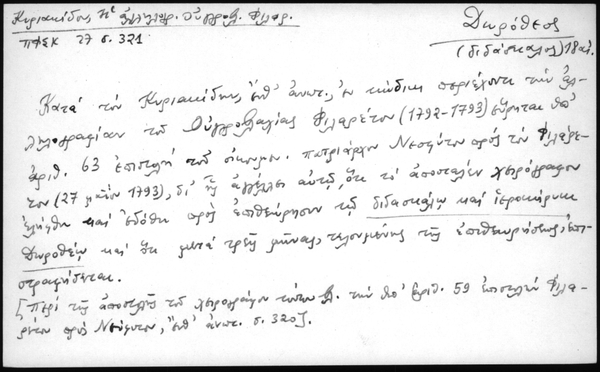 Κυριακίδου, Ἡ ἀλληλογρ. Οὑγγροβλ. Φιλαρ.
ΠΦΣΚ 27 σ. 321
Δωρόθεος
(διδάσκαλος) 18 αἰ.
Κατά τόν Κυριακίδην, ἔνθ' ἀνωτ., ἐν κώδικι περιέχοντι τήν ἀλ-
ληλογραφίαν τοῦ Οὑγγροβλαχίας Φιλαρέτου (1792-1793) εὕρηται ὑπ'
ἀριθ. 63 ἐπιστολή τοῦ οἰκουμεν. πατριάρχου Νεοφύτου πρός τόν Φιλάρε-
τον (27 μαΐου 1793), δι' ἧς ἀγγέλλει αὐτῷ, ὅτι τό ἀποσταλέν χειρόγραφον
ἐλήφθη καί ἐδόθη πρός ἐπιθεώρησιν τῷ διδασκάλῳ καί ἱεροκήρυκι
Δωροθέῳ καί ὅτι μετά τρεῖς μῆνας, τελουμένης τῆς ἐπιθεωρήσεως, ἐπι-
στραφήσεται.
[Περί τῆς ἀποστολῆς τοῦ χειρογράφου τούτου βλ. τήν ὑπ' ἀριθ. 59 ἐπιστολήν Φιλα-
ρέτου πρός Νεόφυτον, ἔνθ' ἀνωτ. σ. 320].